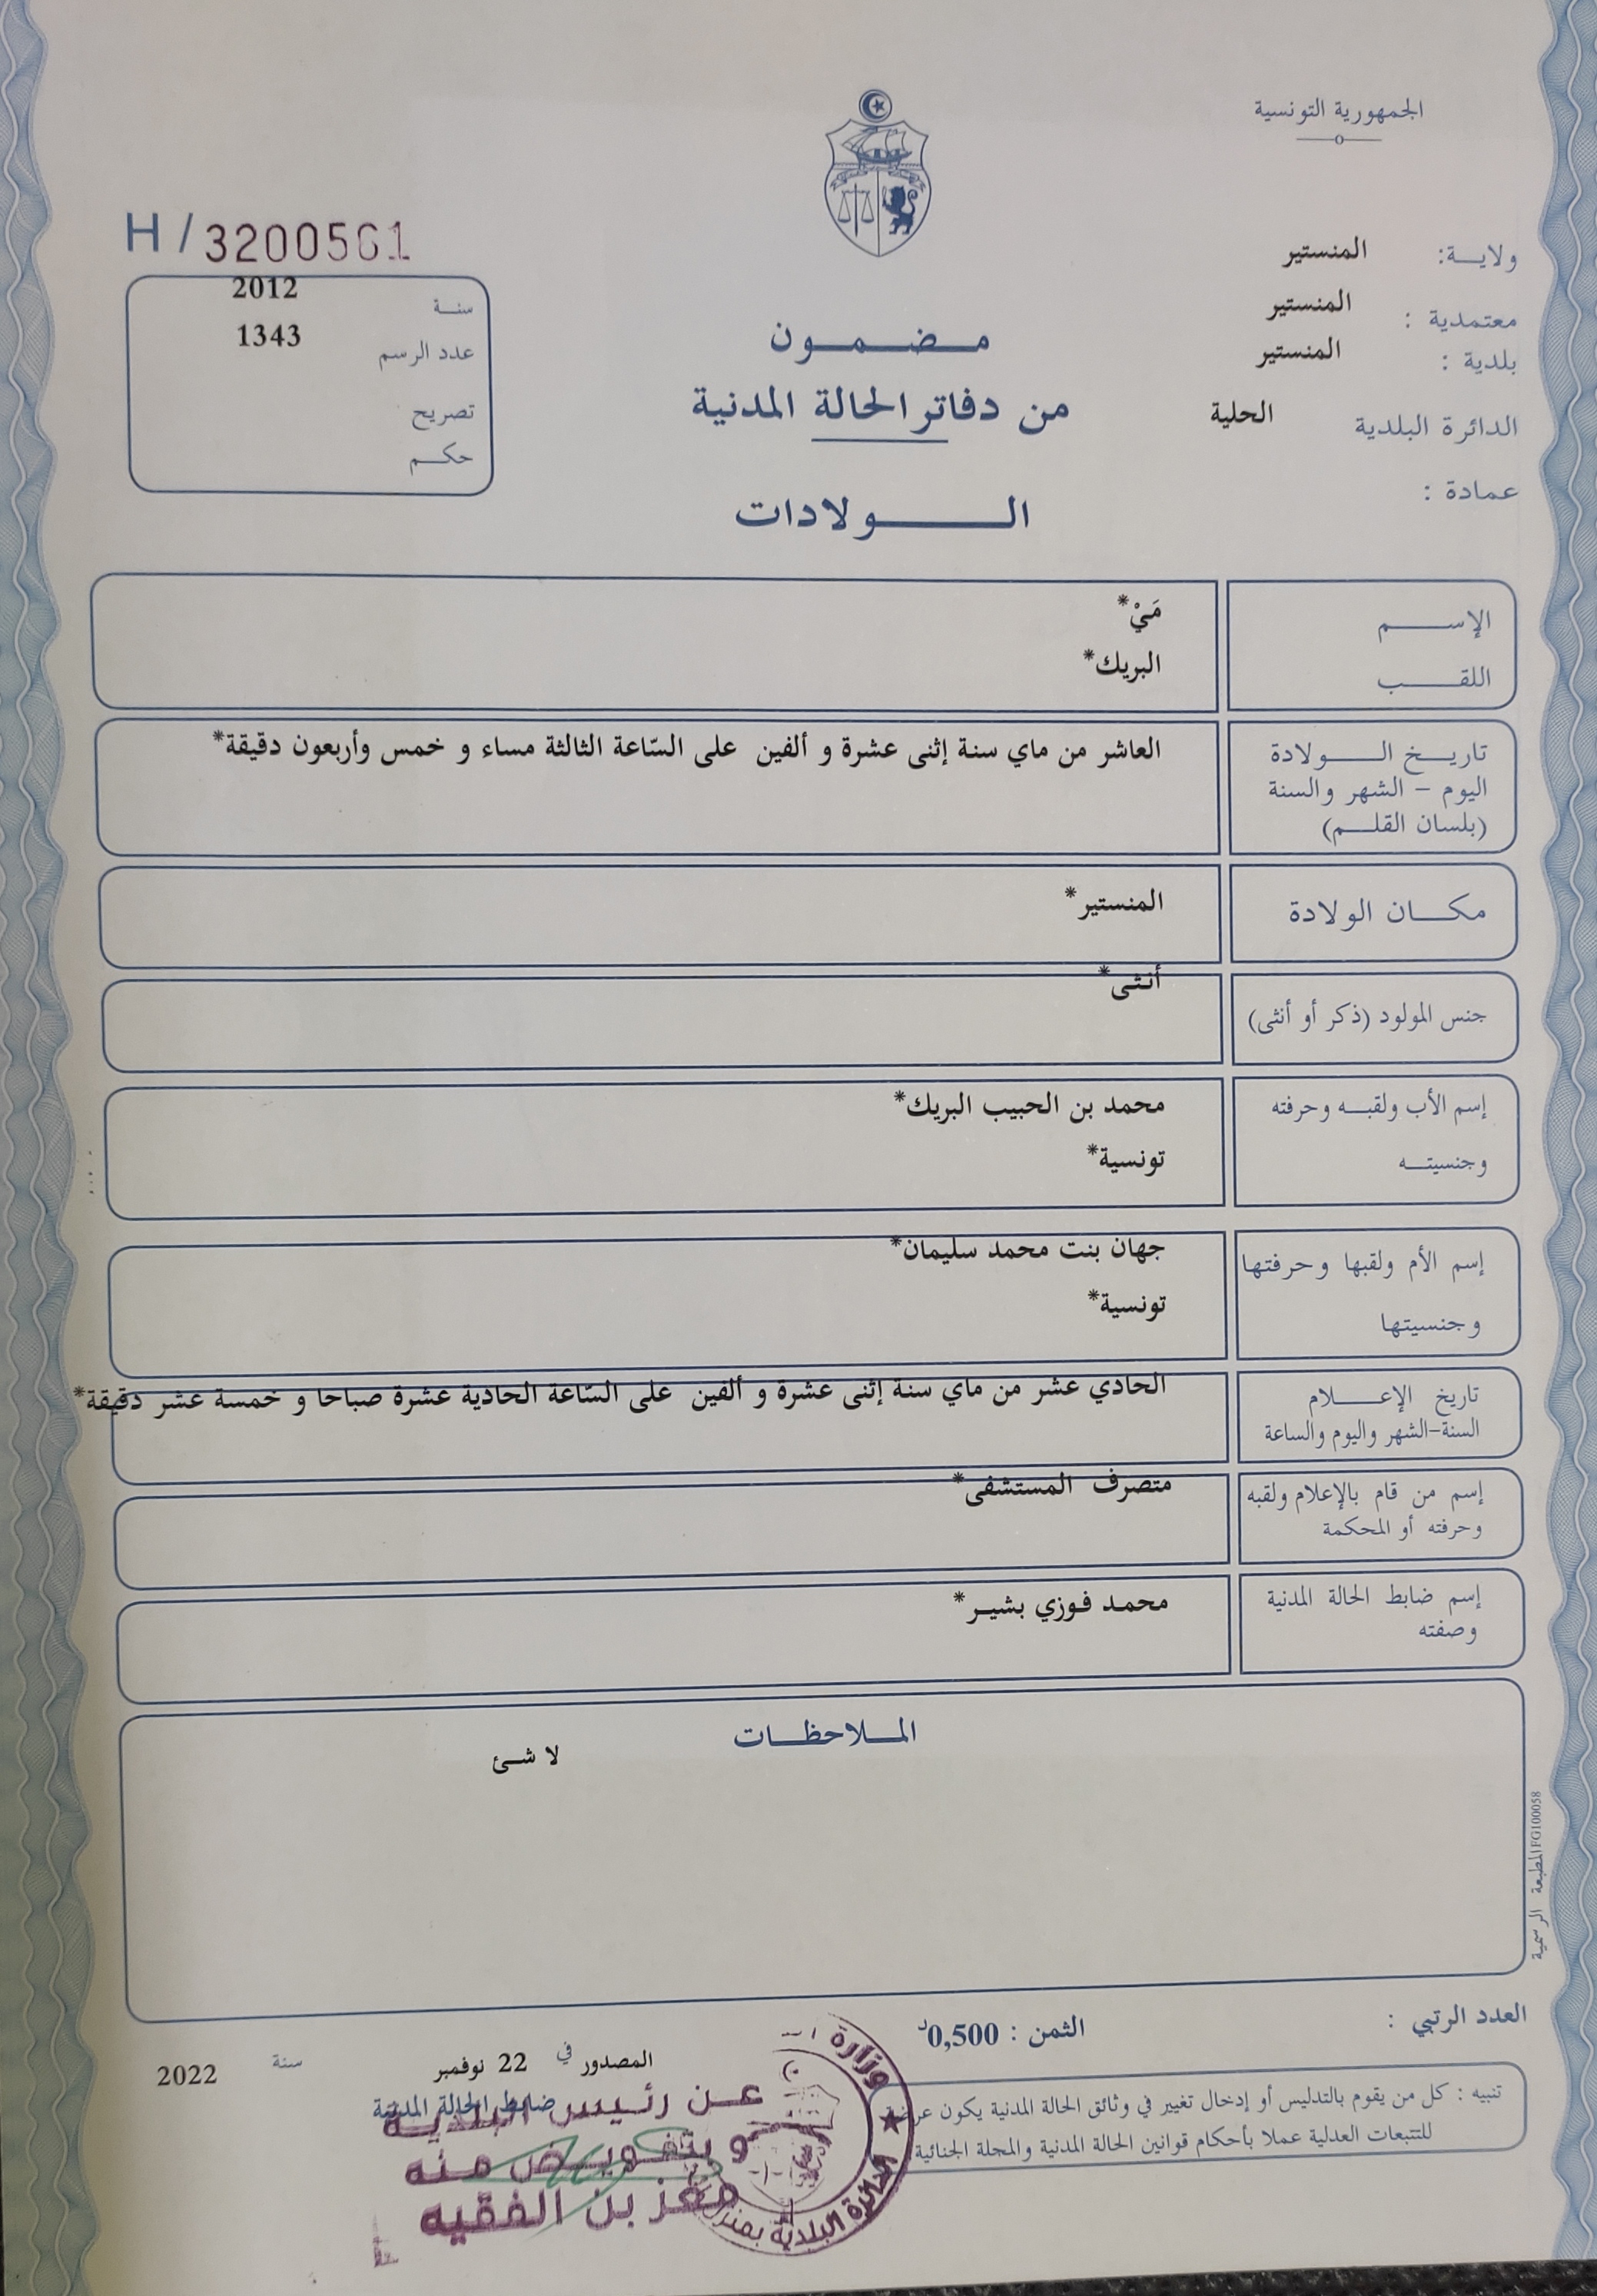 الجمهورية التونسية
ولايـــة: المنستير
معتمدية : المنستير
بلدية : المنستير
الدائرة البلدية الحلية
عمادة :
H / 3200561
سنــة 2012
عدد الرسم 1343
تصريح
حكــم
مـــضـــمـــون
من دفاتر الحالة المدنية
الــــــولادات
الإســــم مَيْ*
اللقـــب البريك*
تاريــخ الـــــولادة العاشر من ماي سنة إثنى عشرة و ألفين على السّاعة الثالثة مساء و خمس وأربعون دقيقة*
اليوم – الشهر والسنة
(بلسان القلــم)
مكـــان الولادة المنستير*
جنس المولود (ذكر أو أنثى) أنثى*
إسم الأب ولقبــه وحرفته محمد بن الحبيب البريك*
وجنسيتــه تونسية*
إسم الأم ولقبها وحرفتها جهان بنت محمد سليمان*
وجنسيتها تونسية*
تاريخ الإعـــــلام الحادي عشر من ماي سنة إثنى عشرة و ألفين على السّاعة الحادية عشرة صباحا و خمسة عشر دقيقة*
السنة-الشهر واليوم والساعة
إسم من قام بالإعلام ولقبه متصرف المستشفى*
وحرفته أو المحكمة
إسم ضابط الحالة المدنية محمد فوزي بشيـر*
وصفته
المــلاحظــات
لا شـئ
المطبعة الرسمية FG100058
العدد الرتبي :
الثمن : 0,500د
تنبيه : كل من يقوم بالتدليس أو إدخال تغيير في وثائق الحالة المدنية يكون عرضة
للتتبعات العدلية عملا بأحكام قوانين الحالة المدنية والمجلة الجنائية
المصدور في 22 نوفمبر سنة 2022
ضابط الحالة المدنية
عـن رئيس البلدية
وبتفويـض منه
معز بن الفقيه
وزارة
الدائرة البلدية